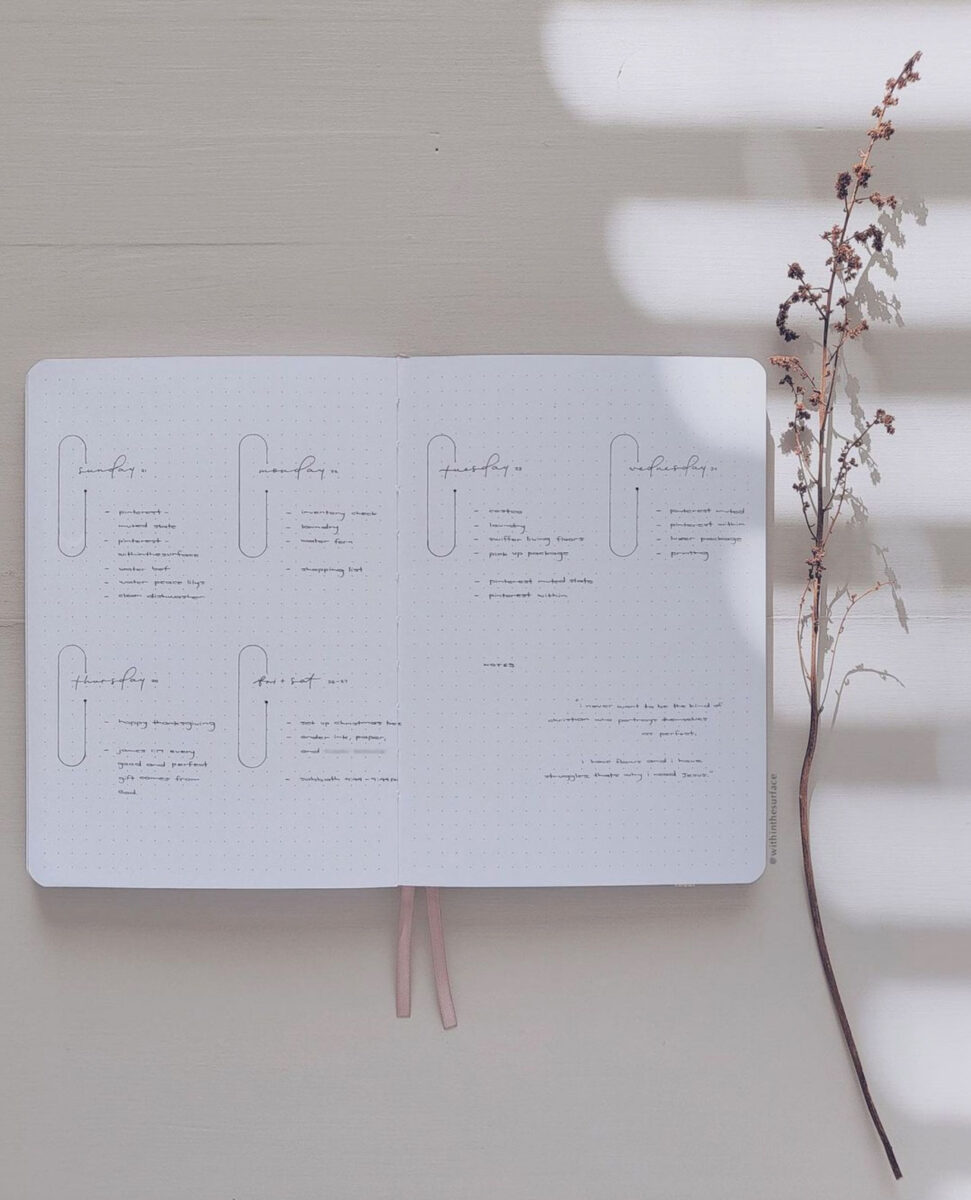 sunday 21
- pinterest -
muted state
- pinterest -
withinthesurface
- water bef
- water peace lilys
- clean dishwasher
monday 22
- inventory check
- laundry
- water fern
- shopping list
tuesday 23
- costco
- laundry
- swiffer living floors
- pick up package
- pinterest muted state
- pinterest within
wednesday 24
- pinterest muted
- pinterest within
- package
- printing
thursday 25
- happy thanksgiving
- james 1:17 every
good and perfect
gift comes from
God.
fri + sat 26-27
- set up christmas tree
- order ink, paper,
and
- sabbath
NOTES
"i never want to be the kind of
christian who portrays themselves
as perfect.
i have flaws and i have
struggles thats why i need Jesus."
@withinthesurface